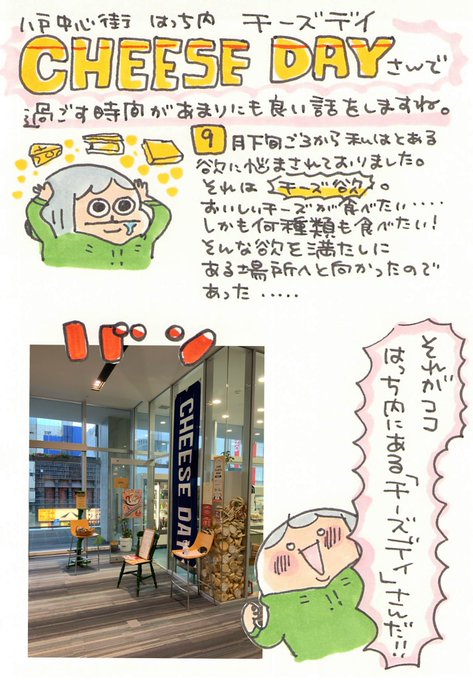 八戸中心街 はっち内 チーズデイ
CHEESE DAYさんで
過ごす時間があまりにも良い話をしますね。
9月下旬ごろから私はとある
欲に悩まされておりました。
それはチーズ欲。
おいしいチーズが食べたい....
しかも何種類も食べたい!
そんな欲を満たしに
ある場所へと向かったので
あった.....
バン
CHEESE DAY
それがココ
はっち内にある「チーズデイ」さんだ!!